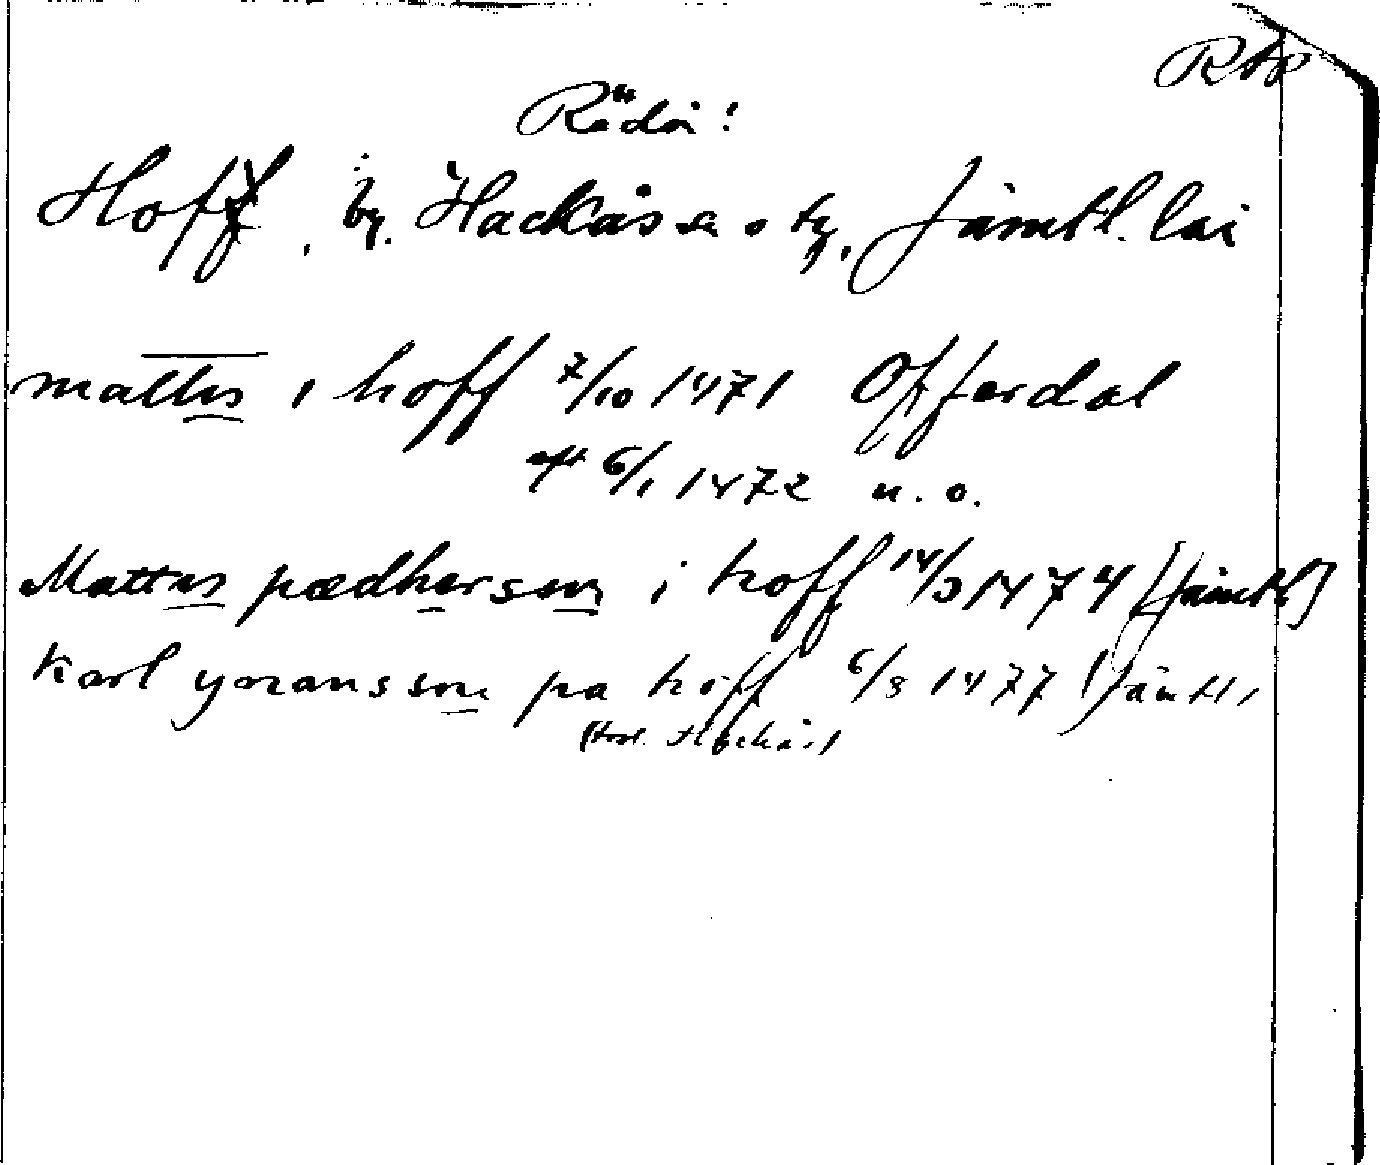 Rödön!
Hoff, by. Hackås sn o tg, Jämtl. län
mattis i hoff 7/10 1471 Offerdal
aft 6/1 1472 u. o.
Mattis pædherson i hoff 14/3 1474 (Jämtl)
Karl yoransson pa hoff 6/3 1477 (Jämtl,
Hackås)